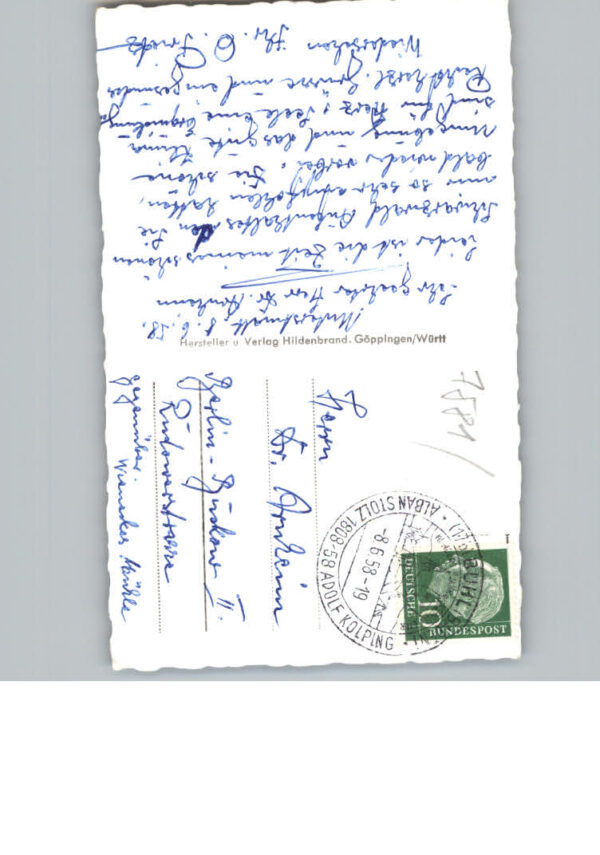 Unterstmatt, 8.6.58.
Sehr geehrter Herr Dr.
Leider ist die Zeit meines schönen
Schwarzwald Aufenthaltes, den Sie
mir so sehr empfohlen hatten,
bald wieder vorbei. Die schöne
Umgebung und das gute Klima
sind für Herz u. Seele eine
Recht herzl. Grüsse und ein gesundes
Wiedersehen Ihr O.
Hersteller u Verlag Hildenbrand, Göppingen/Württ
Herrn
Dr.
Berlin-Buckow II.
Rudowerstrasse
gegenüber
7581/
ALBAN STOLZ 1808·58 ADOLF KOLPING
BÜHL
-8.6.58-19
DEUTSCHE
BUNDESPOST
10
1